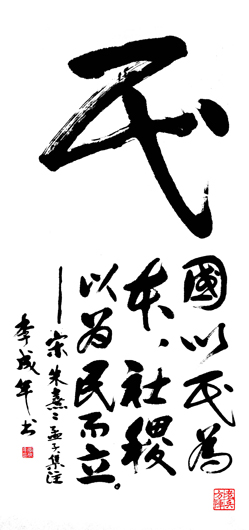 民
國以民為
本、社稷
以為民而立。
——宗朱熹《孟子集注》
李成年书